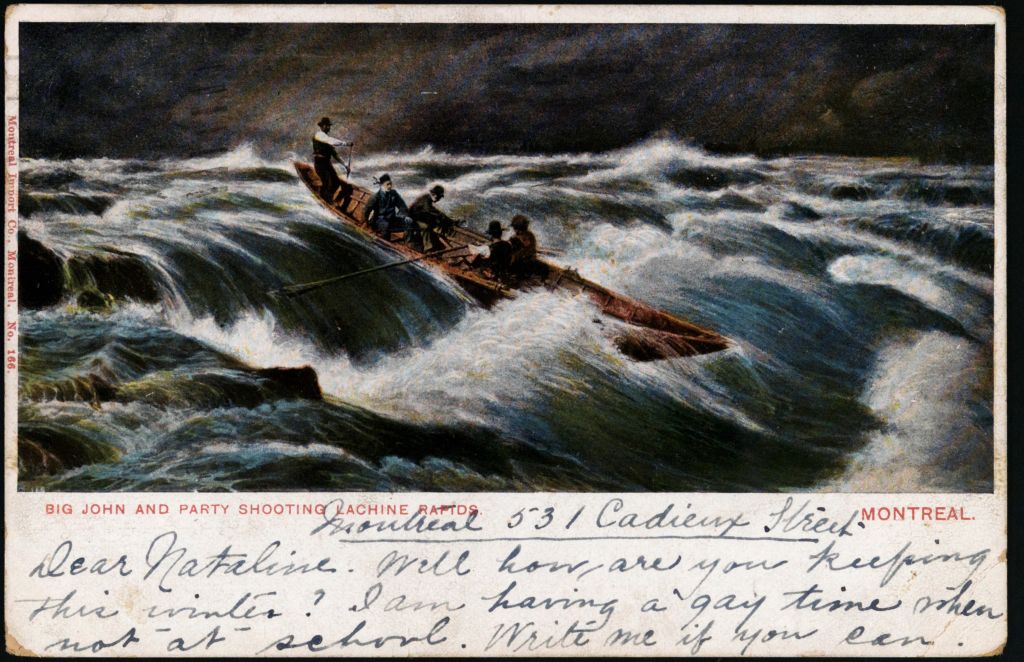 Montreal Import Co., Montreal. No. 166.
BIG JOHN AND PARTY SHOOTING LACHINE RAPIDS.
MONTREAL.
Montreal 531 Cadieux Street
Dear Nataline. Well how are you keeping
this winter? I am having a gay time when
not at school. Write me if you can.